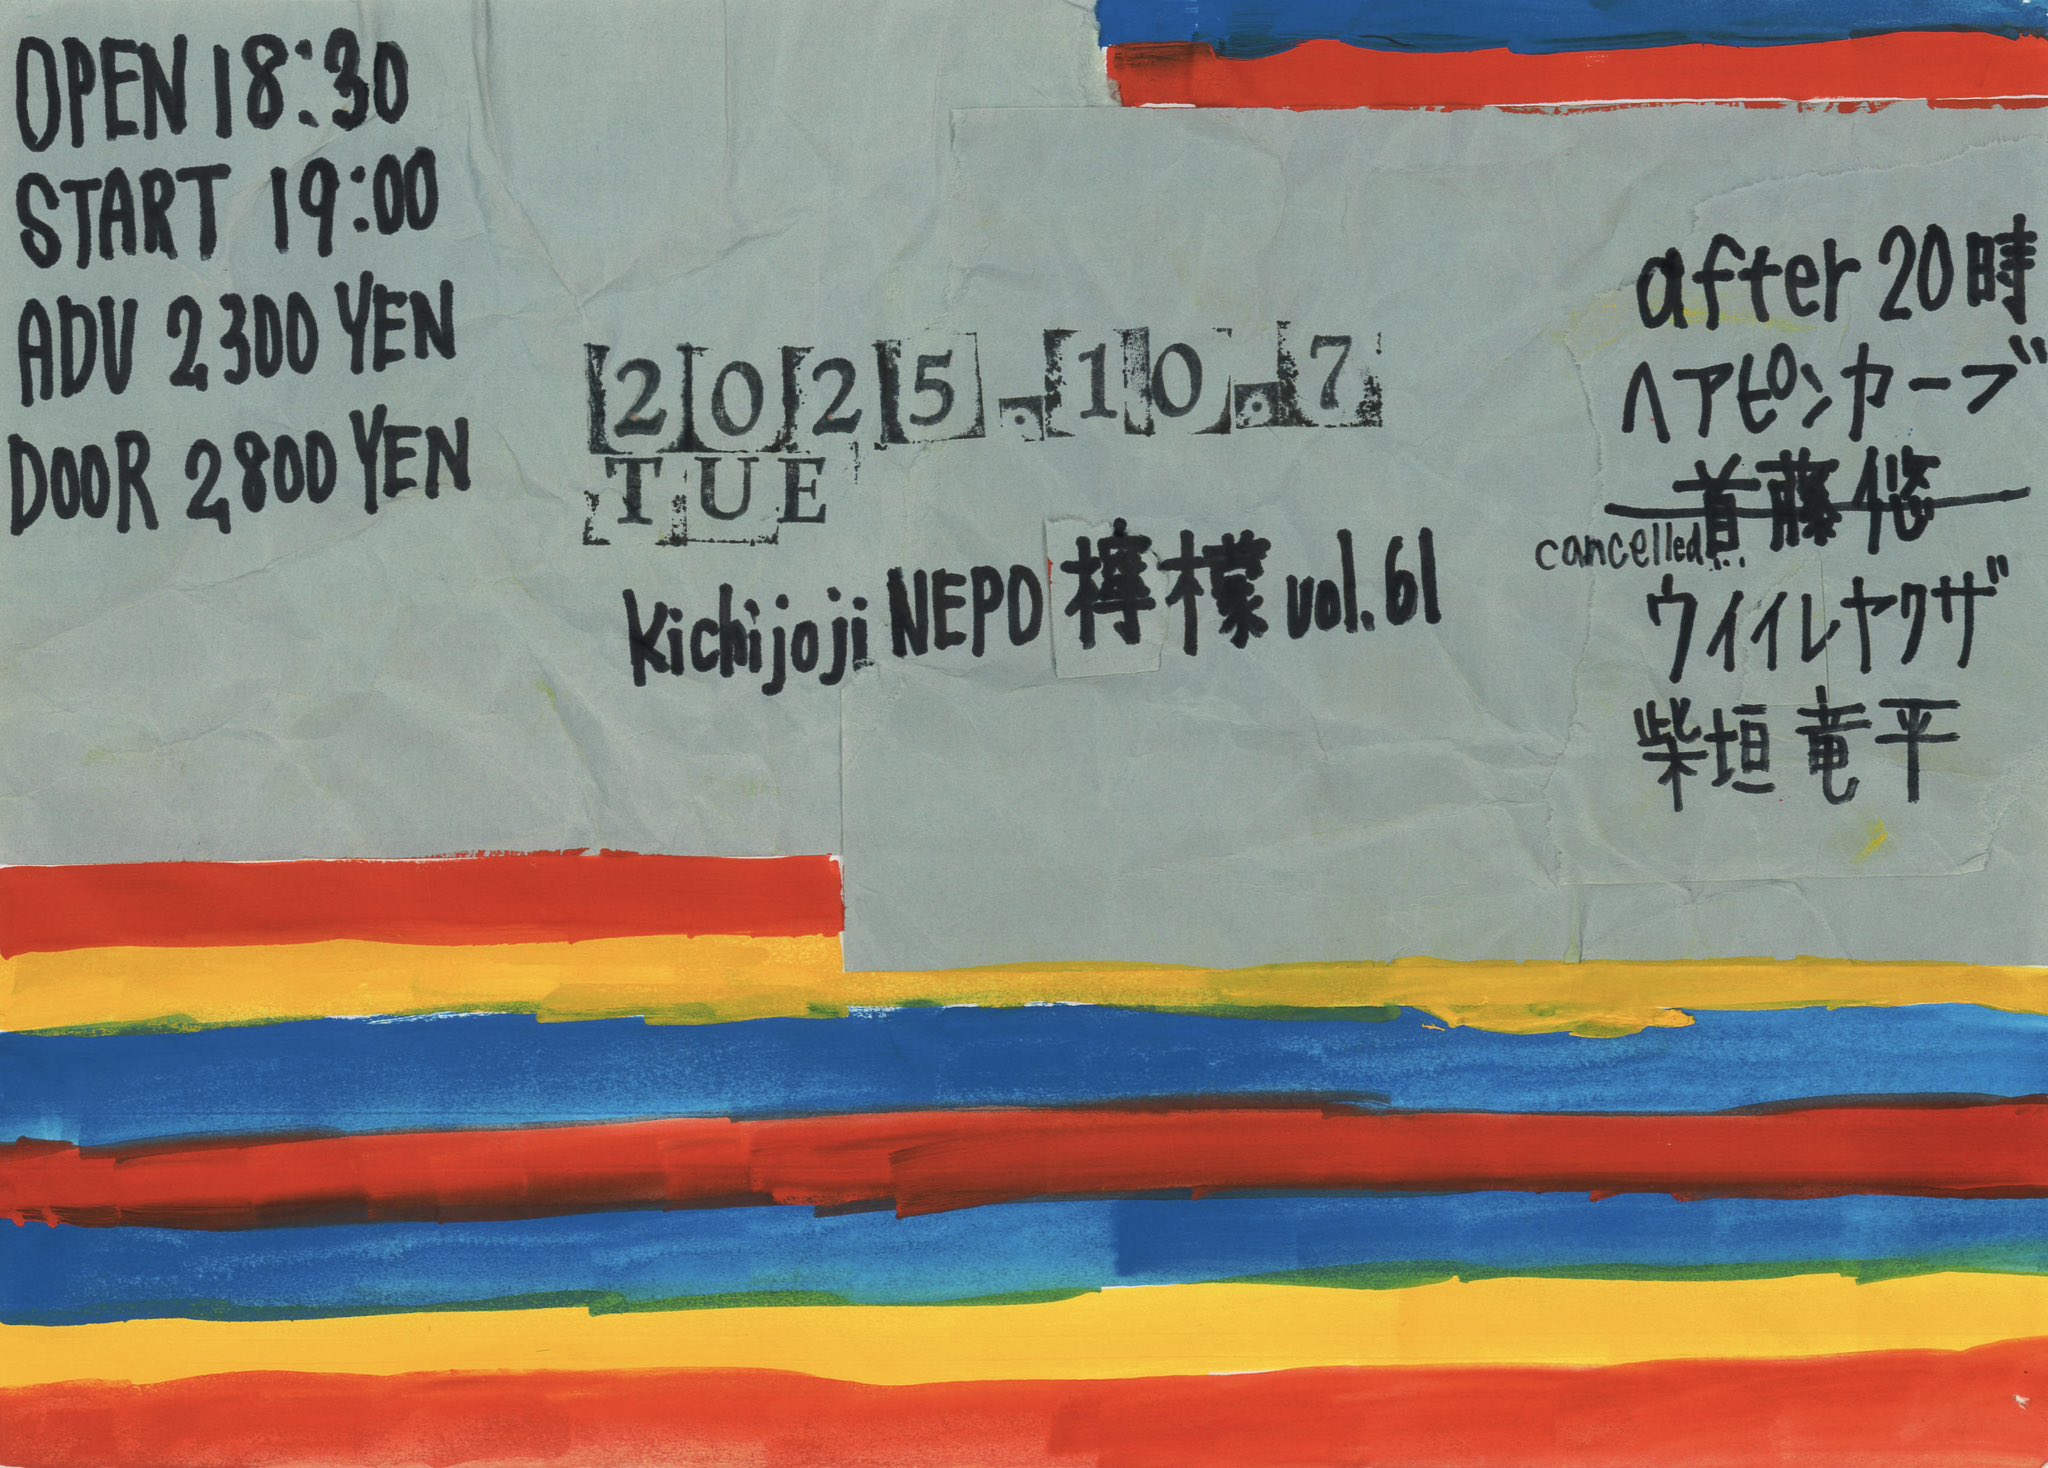 OPEN 18:30
START 19:00
ADV 2300 YEN
DOOR 2800 YEN
2025.10.7
TUE
Kichijoji NEPO 檸檬 vol.61
after 20時
ヘアピンカーブ
首藤悠
cancelled...
ウイイレヤクザ
柴垣竜平